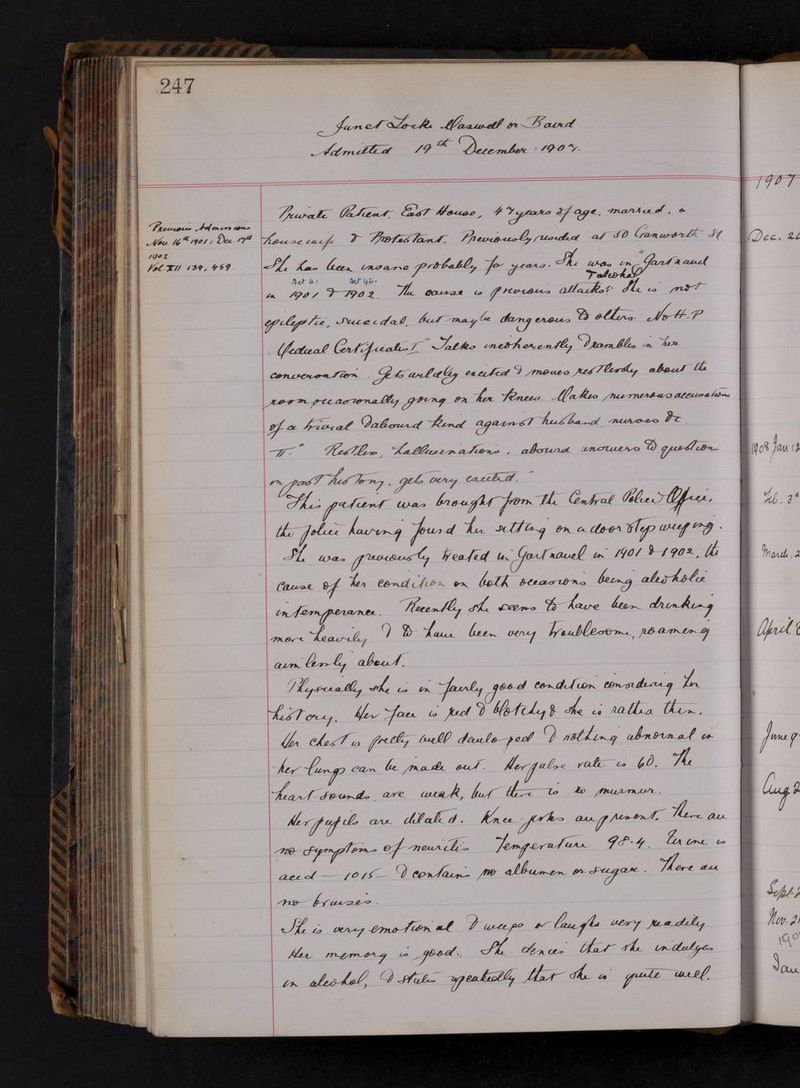 247
Janet Locke Maxwell or Baird
Admitted 19th December 1907.
Previous Admissions
Nov 16th 1901; Dec 17th
1902
Vol. XII 139, 459
Private Patient, East House, 47 years of age, married, a
housewife & Protestant. Previously resided at 50 Cranworth St
She has been insane probably for years. She was in Gartnavel
in 1901 & 1902. The cause is previous attacks & alcohol She is not
epileptic, suicidal, but may be dangerous to others. No H.P
Medical Certificates I "Talks incoherently & rambles in her
conversation Gets wildly excited & moves restlessly about the
room occasionally going on her knees. Makes numerous accusations
of a trivial & absurd kind against husband nurses &c
II." Restless, hallucinations, absurd answers to question
on past history, gets very excited."
This patient was brought from the Central Police Office,
the police having found her sitting on a door step weeping.
She was previously treated in Gartnavel in 1901 & 1902, the
cause of her condition on both occasions being alcoholic
intemperance. Recently she seems to have been drinking
more heavily & to have been very troublesome, roaming
aimlessly about.
Physically she is in fairly good condition considering her
history. Her face is red & blotchy & she is rather thin.
Her chest is pretty well developed & nothing abnormal in
her lungs can be made out. Her pulse rate is 60. The
heart sounds are weak, but there is no murmur.
Her pupils are dilated. Knee jerks are present. There are
no symptoms of neuritis Temperature 98.4. Urine is
acid — 1015 — & contains no albumen or sugar. There are
no bruises.
She is very emotional & weeps or laughs very readily
Her memory is good. She denies that she indulges
in alcohol, & states repeatedly that she is quite well.
1907
Dec. 2
1908 Jan 12
Feb. 3
March. 2
April
June 9
Aug 2
Sept. 2
Nov. 21
190
Jan